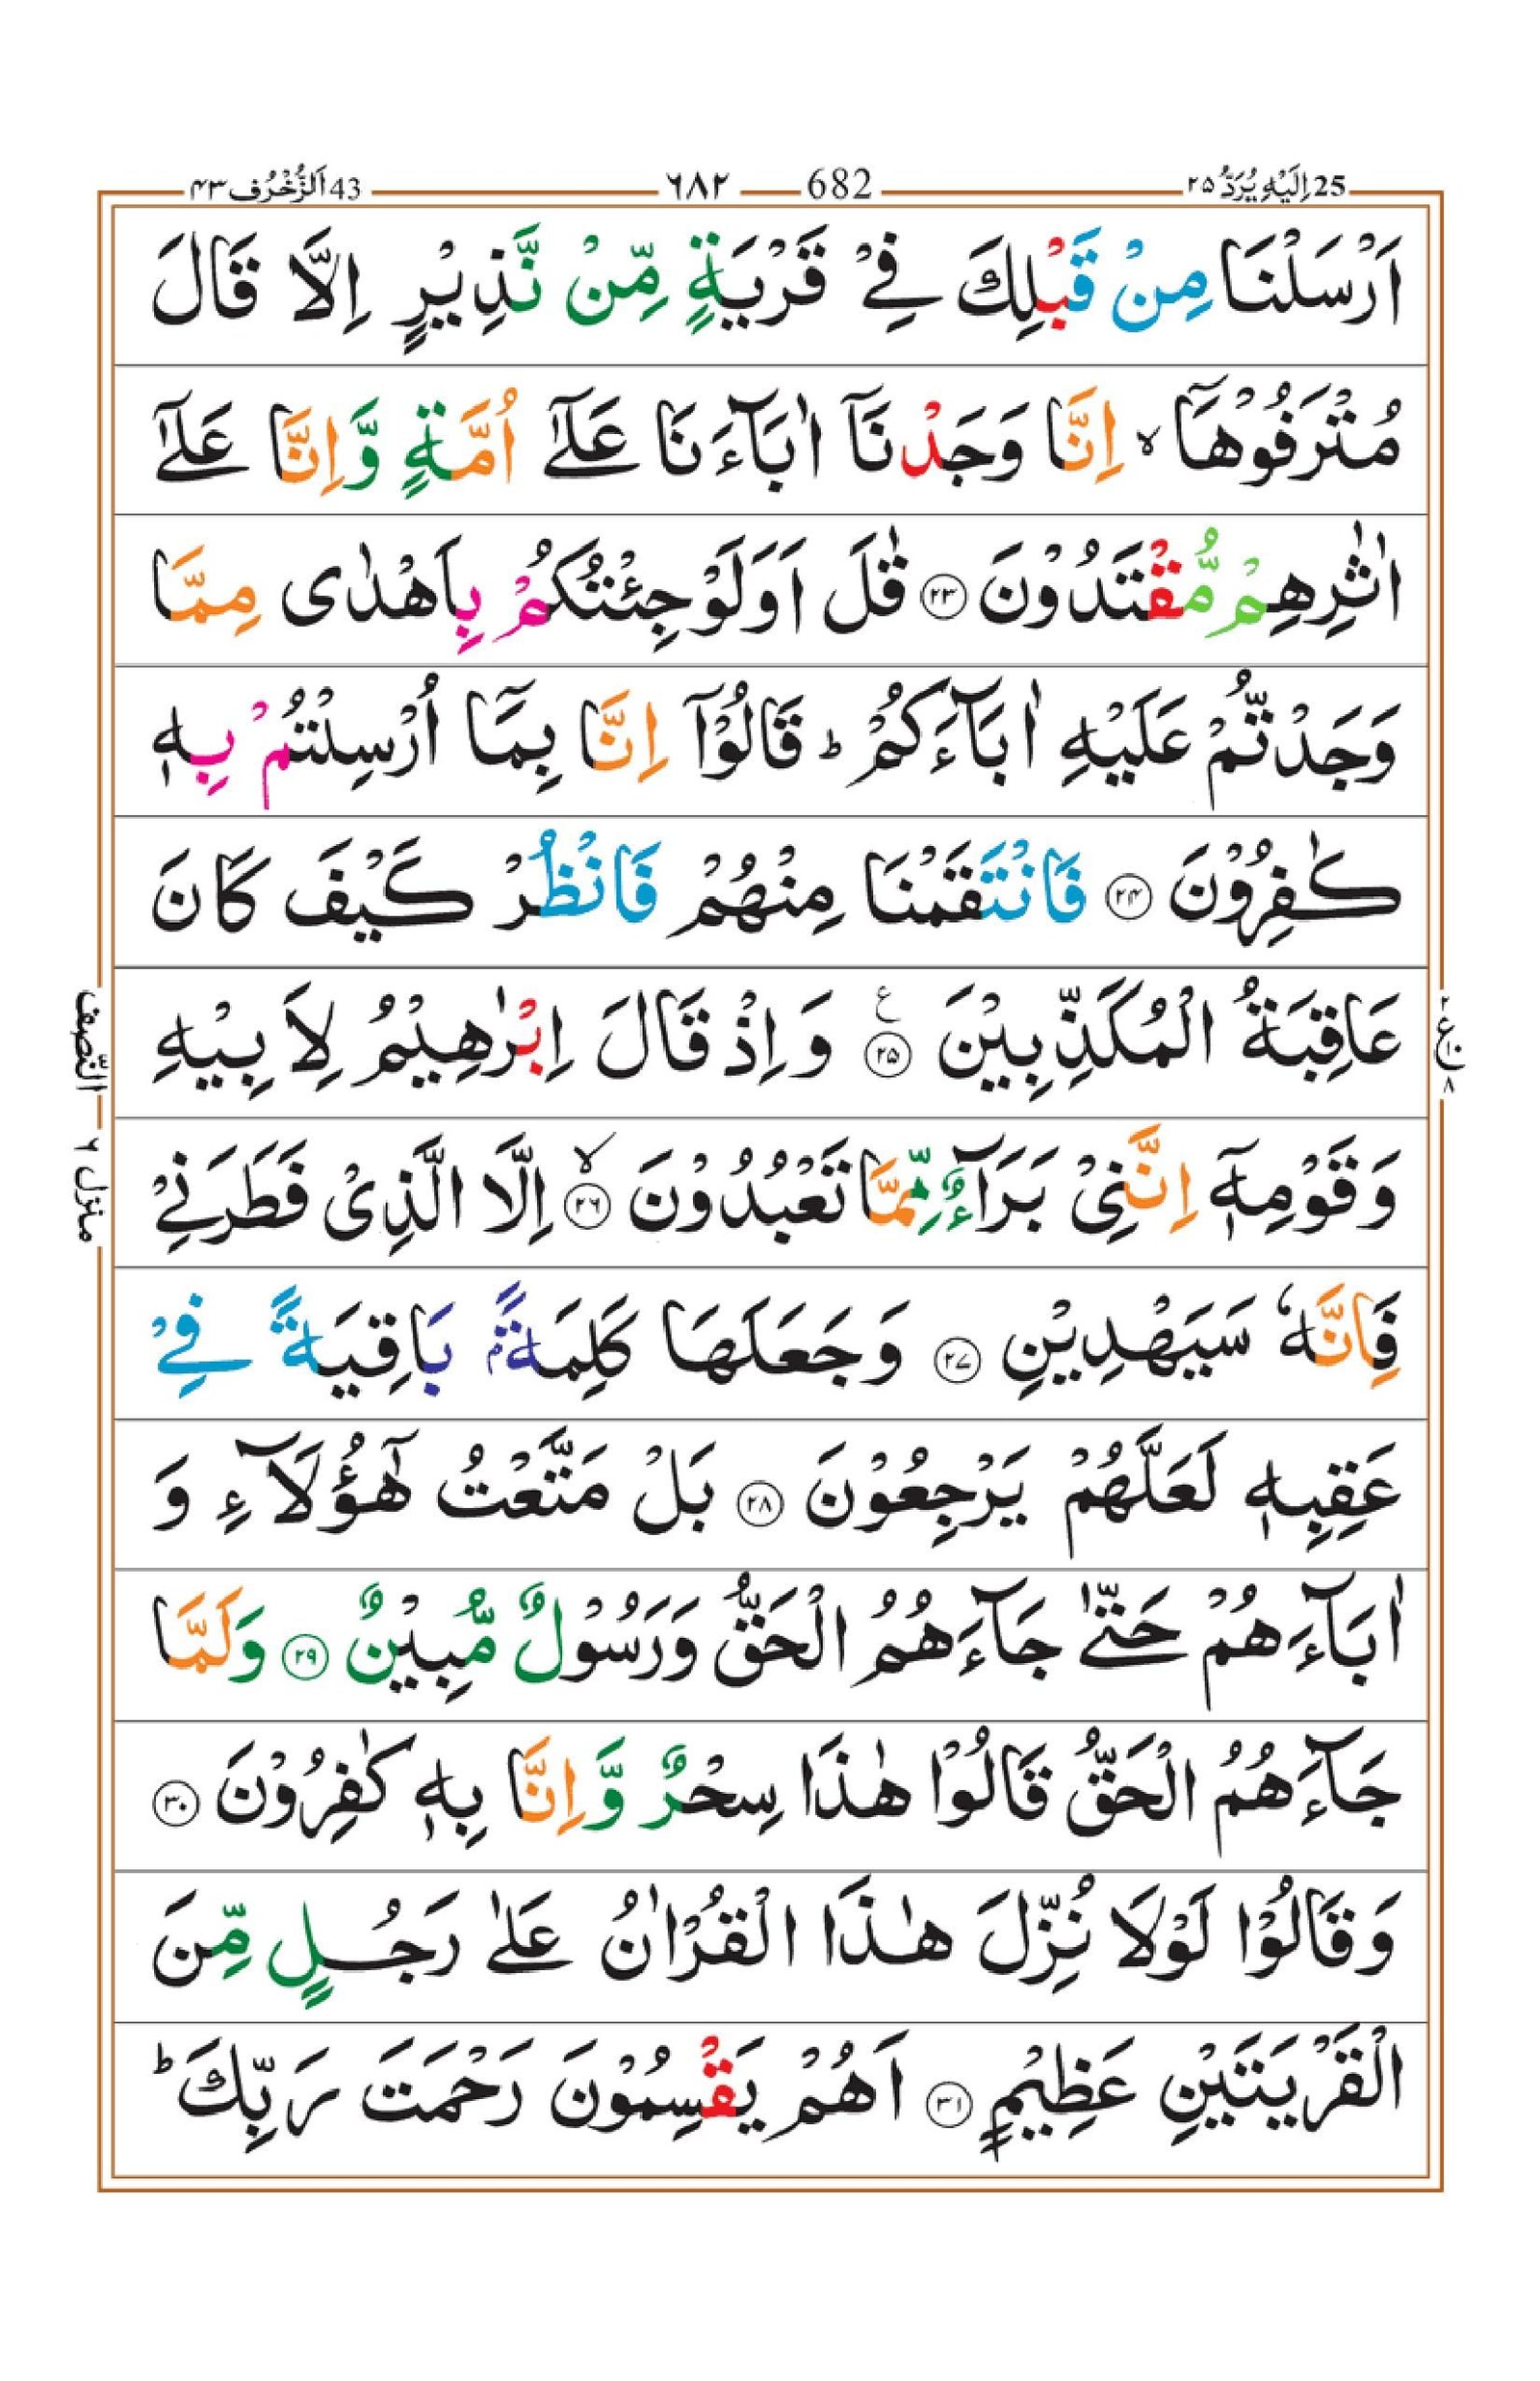 25 اِلَيْهِ يُرَدُّ ٢٥
682 ٦٨٢
43 اَلزُّخْرُف ٤٣
اَرْسَلْنَا مِنْ قَبْلِكَ فِیْ قَرْيَةٍ مِّنْ نَّذِيْرٍ اِلَّا قَالَ
مُتْرَفُوْهَاۤ ۙ اِنَّا وَجَدْنَاۤ اٰبَآءَنَا عَلٰۤى اُمَّةٍ وَّاِنَّا عَلٰۤى
اٰثٰرِهِمْ مُّقْتَدُوْنَ ﴿۲۳﴾ قٰلَ اَوَلَوْ جِئْتُكُمْ بِاَهْدٰى مِمَّا
وَجَدْتُّمْ عَلَيْهِ اٰبَآءَكُمْ ؕ قَالُوْۤا اِنَّا بِمَاۤ اُرْسِلْتُمْ بِهٖ
كٰفِرُوْنَ ﴿۲۴﴾ فَانْتَقَمْنَا مِنْهُمْ فَانْظُرْ كَيْفَ كَانَ
عَاقِبَةُ الْمُكَذِّبِيْنَ ﴿۲۵﴾ ع وَاِذْ قَالَ اِبْرٰهِيْمُ لِاَبِيْهِ
وَقَوْمِهٖۤ اِنَّنِیْ بَرَآءٌ مِّمَّا تَعْبُدُوْنَ ﴿۲۶﴾ ۙ اِلَّا الَّذِیْ فَطَرَنِیْ
فَاِنَّهٗ سَيَهْدِيْنِ ﴿۲۷﴾ وَجَعَلَهَا كَلِمَةًۢ بَاقِيَةً فِیْ
عَقِبِهٖ لَعَلَّهُمْ يَرْجِعُوْنَ ﴿۲۸﴾ بَلْ مَتَّعْتُ هٰۤؤُلَآءِ وَ
اٰبَآءَهُمْ حَتّٰى جَآءَهُمُ الْحَقُّ وَرَسُوْلٌ مُّبِيْنٌ ﴿۲۹﴾ وَلَمَّا
جَآءَهُمُ الْحَقُّ قَالُوْا هٰذَا سِحْرٌ وَّاِنَّا بِهٖ كٰفِرُوْنَ ﴿۳۰﴾
وَقَالُوْا لَوْلَا نُزِّلَ هٰذَا الْقُرْاٰنُ عَلٰى رَجُلٍ مِّنَ
الْقَرْيَتَيْنِ عَظِيْمٍ ﴿۳۱﴾ اَهُمْ يَقْسِمُوْنَ رَحْمَتَ رَبِّكَ ؕ
٢ ع ١٠ ٨
النِّصف
منزل ٦